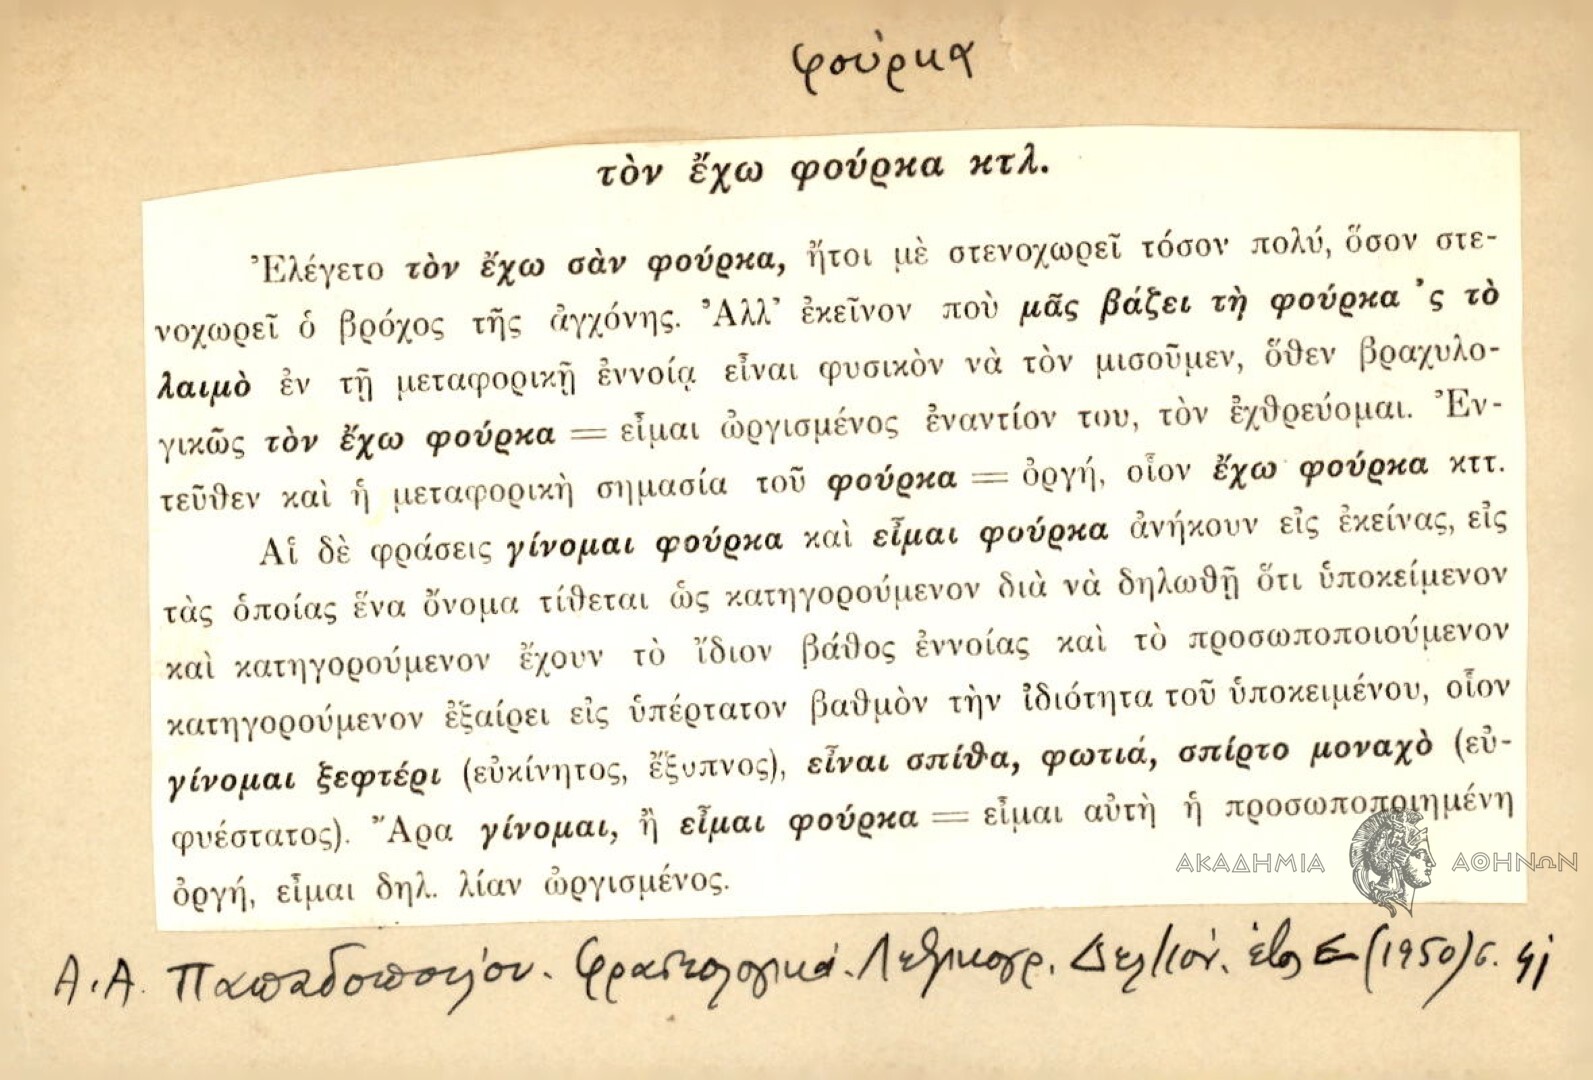 φούρκα
τὸν ἔχω φούρκα κτλ.
Ἐλέγετο τὸν ἔχω σὰν φούρκα, ἤτοι μὲ στενοχωρεῖ τόσον πολύ, ὅσον στε-
νοχωρεῖ ὁ βρόχος τῆς ἀγχόνης. Ἀλλ’ ἐκεῖνον ποὺ μᾶς βάζει τὴ φούρκα ’ς τὸ
λαιμὸ ἐν τῇ μεταφορικῇ ἐννοίᾳ εἶναι φυσικὸν νὰ τὸν μισοῦμεν, ὅθεν βραχυλο-
γικῶς τὸν ἔχω φούρκα = εἶμαι ὠργισμένος ἐναντίον του, τὸν ἐχθρεύομαι. Ἐν-
τεῦθεν καὶ ἡ μεταφορικὴ σημασία τοῦ φούρκα = ὀργή, οἷον ἔχω φούρκα κττ.
Αἱ δὲ φράσεις γίνομαι φούρκα καὶ εἶμαι φούρκα ἀνήκουν εἰς ἐκείνας, εἰς
τὰς ὁποίας ἕνα ὄνομα τίθεται ὡς κατηγορούμενον διὰ νὰ δηλωθῇ ὅτι ὑποκείμενον
καὶ κατηγορούμενον ἔχουν τὸ ἴδιον βάθος ἐννοίας καὶ τὸ προσωποποιούμενον
κατηγορούμενον ἐξαίρει εἰς ὑπέρτατον βαθμὸν τὴν ἰδιότητα τοῦ ὑποκειμένου, οἷον
γίνομαι ξεφτέρι (εὐκίνητος, ἔξυπνος), εἶναι σπίθα, φωτιά, σπίρτο μοναχὸ (εὐ-
φυέστατος). Ἄρα γίνομαι, ἢ εἶμαι φούρκα = εἶμαι αὐτὴ ἡ προσωποποιημένη
ὀργή, εἶμαι δηλ. λίαν ὠργισμένος.
ΑΚΑΔΗΜΙΑ ΑΘΗΝΩΝ
Α. Α. Παπαδοπούλου. Φρασεολογικά. Λεξικογρ. Δελτίον. ἔτος Ε (1950) σ.